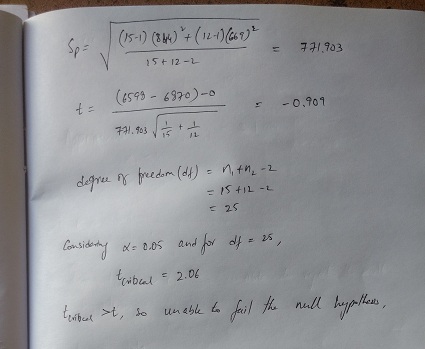 Sp = √((15-1)(844)² + (12-1)(669)² / 15+12-2) = 771.903
t = (6598 - 6870)-0 / 771.903 √(1/15 + 1/12) = -0.909
degree of freedom (df) = n₁+n₂ -2
= 15+12 -2
= 25
Considering α= 0.05 and for df = 25,
tcritical = 2.06
tcritical >t, so unable to fail the null hypothesis.